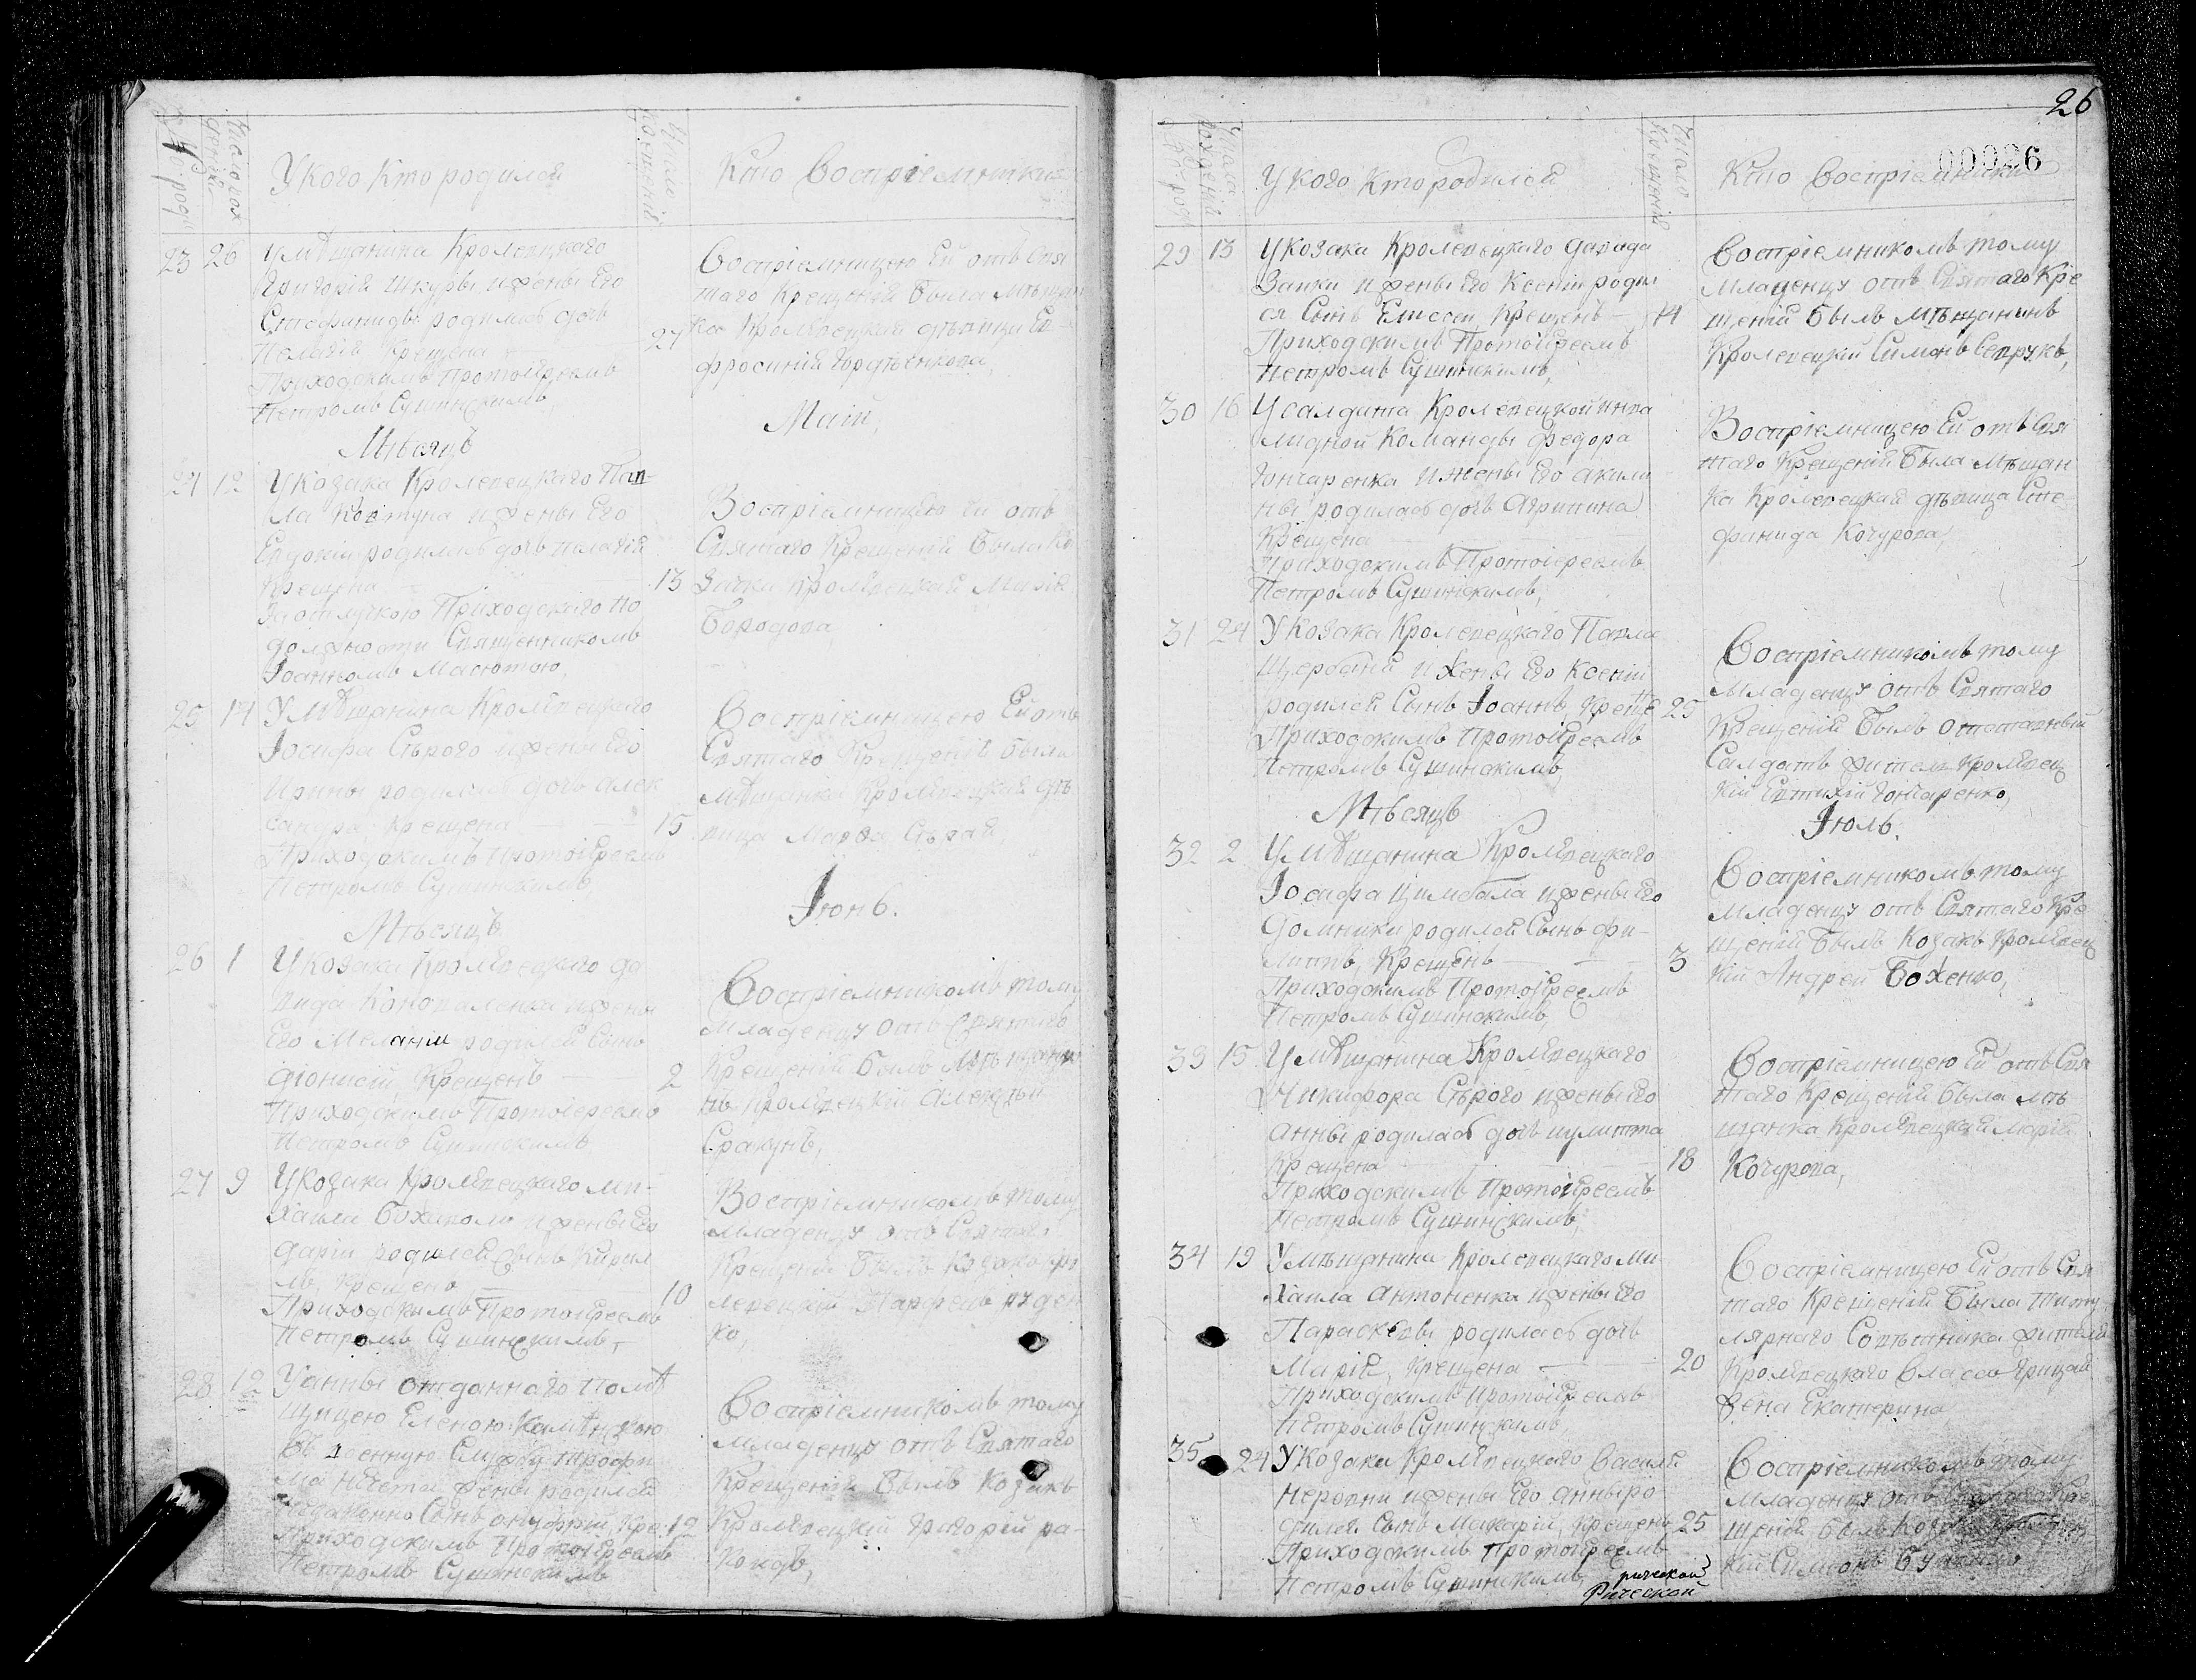 26
00026
Число рож
дений
Укого Кто родился
Число
крещенія
Кто Воспріемники
23 26 Умѣщанина Кролевецкаго
Григорія Шкуры ижены Его
Стефаниды родилась дочь
Пелагія Крещена
Приходскимъ Протоіереемъ
Петромъ Сушинскимъ,
27
Воспріемницею Ей отъ Свя
таго Крещенія Была мѣщан
ка Кролевецкая дѣвица Ев-
фросинія Гордѣенкова,
Мѣсяцъ
Маій,
24 12 Укозака Кролевецкаго Пав-
ла Ковтуна ижены Его
Евдокіи родилась дочь Пелагія
Крещена
Заотлучкою Приходскаго По
должности Священникомъ
Іоанномъ Масютою,
13
Воспріемницею Ей отъ
Святаго Крещенія Была Ко
зачка Кролевецкая Марія
Бородова
25 14 Умѣщанина Кролевецкаго
Іосифа Сѣрого ижены Его
Ирины родилась дочь Алек
сандра, Крещена
Приходскимъ Протоіереемъ
Петромъ Сушинскимъ,
15
Воспріемницею Ей отъ
Святаго Крещенія была
мѣщанка Кролевецкая дѣ
вица Марѳа Сѣрая,
Мѣсяцъ
Іюнь.
26 1 Укозака Кролевецкаго Да
вида Коноваленка ижены
Его Меланіи родился Сынъ
Діонисій, Крещенъ
Приходскимъ Протоіереемъ
Петромъ Сушинскимъ
2
Воспріемникомъ тому
младенцу отъ Святаго
Крещенія былъ мѣщани
нъ Кролевецкій Алексѣй
Сракунъ,
27 9 Укозака Кролевецкаго Ми-
хаила ижены Его
Даріи родился Сынъ Кирил
лъ, Крещенъ
Приходскимъ Протоіереемъ
Петромъ Сушинскимъ,
10
Воспріемникомъ тому
младенцу отъ Святаго
Крещенія Былъ Козакъ Кро
левецкій Парфенъ Руден
ко,
28 12 Уанны отданнаго Помѣ
щицею Еленою
въ военную Службу Трофи
ма жены родился
Сынъ Онуфрій, Кре. 12
Приходскимъ Протоіереемъ
Петромъ Сушинскимъ
Воспріемникомъ тому
младенцу отъ Святаго
Крещенія Былъ Козакъ
Кролевецкій Григорій Ра-
Укого Ктородился
Число
крещенія
Кто Воспріемники
29 13 Укозака Кролевецкаго Давида
Заики ижены Его Ксеніи родил
ся Сынъ Елисей Крещенъ
Приходскимъ Протоіереемъ
Петромъ Сушинскимъ,
14
Воспріемникомъ тому
Младенцу отъ Святаго Кре
щенія былъ мѣщанинъ
Кролевецкій Симонъ Сепрукъ,
30 16 Усалдата Кролевецкой инва
лидной Команды Федора
Гончаренка ижены Его Акили
ны родилась дочь Агрипина
Крещена
Приходскимъ Протоіереемъ
Петромъ Сушинскимъ,
Воспріемницею Ей отъ Свя
таго Крещенія Была Мѣщан
ка Кролевецкая дѣвица Сте
фанида Кочурова,
31 24 Укозака Кролевецкаго Павла
Щербаня и жены Его Ксеніи
родился Сынъ Іоаннъ, Креще
Приходскимъ Протоіереемъ
Петромъ Сушинскимъ,
25
Воспріемникомъ тому
Младенцу отъ Святаго
Крещенія Былъ отставный
Салдатъ житель Кролевец
кій Евтихій Гончаренко,
Мѣсяцъ
Іюль.
32 2 Умѣщанина Кролевецкаго
Іосифа Цимбала ижены Его
Домникіи родился Сынъ Фи-
липпъ, Крещенъ
Приходскимъ Протоіереемъ
Петромъ Сушинскимъ,
3
Воспріемникомъ тому
младенцу отъ Святаго Кре
щенія Былъ Козакъ Кролевец
кій Андрей Боженко,
33 15 Умѣщанина Кролевецкаго
Никифора Сѣрого ижены Его
Анны родилась дочь иулитта
Крещена
Приходскимъ Протоіереемъ
Петромъ Сушинскимъ,
18
Воспріемницею Ей отъ Свя
таго Крещенія была мѣ
щанка Кролевецкая Марія
Кочурова,
34 19 Умѣщанина Кролевецкаго Ми
хаила Антоненка ижены Его
Параскевы родилась дочь
Марія, Крещена
Приходскимъ Протоіереемъ
Петромъ Сушинскимъ,
20
Воспріемницею Ей отъ Свя
таго Крещенія Была титу
лярнаго Совѣтника жителя
Кролевецкаго Власа Грицая
жена Екатерина
35 24 Укозака Кролевецкаго Василія
ижены Его Анны ро
дился Сынъ Макарій, Крещенъ
Приходскимъ Протоіереемъ
Петромъ Сушинскимъ,
25
Воспріемникомъ тому
младенцу отъ Святаго Кре
щенія былъ Козакъ Кролевец
кій Симонъ
рической
Рической